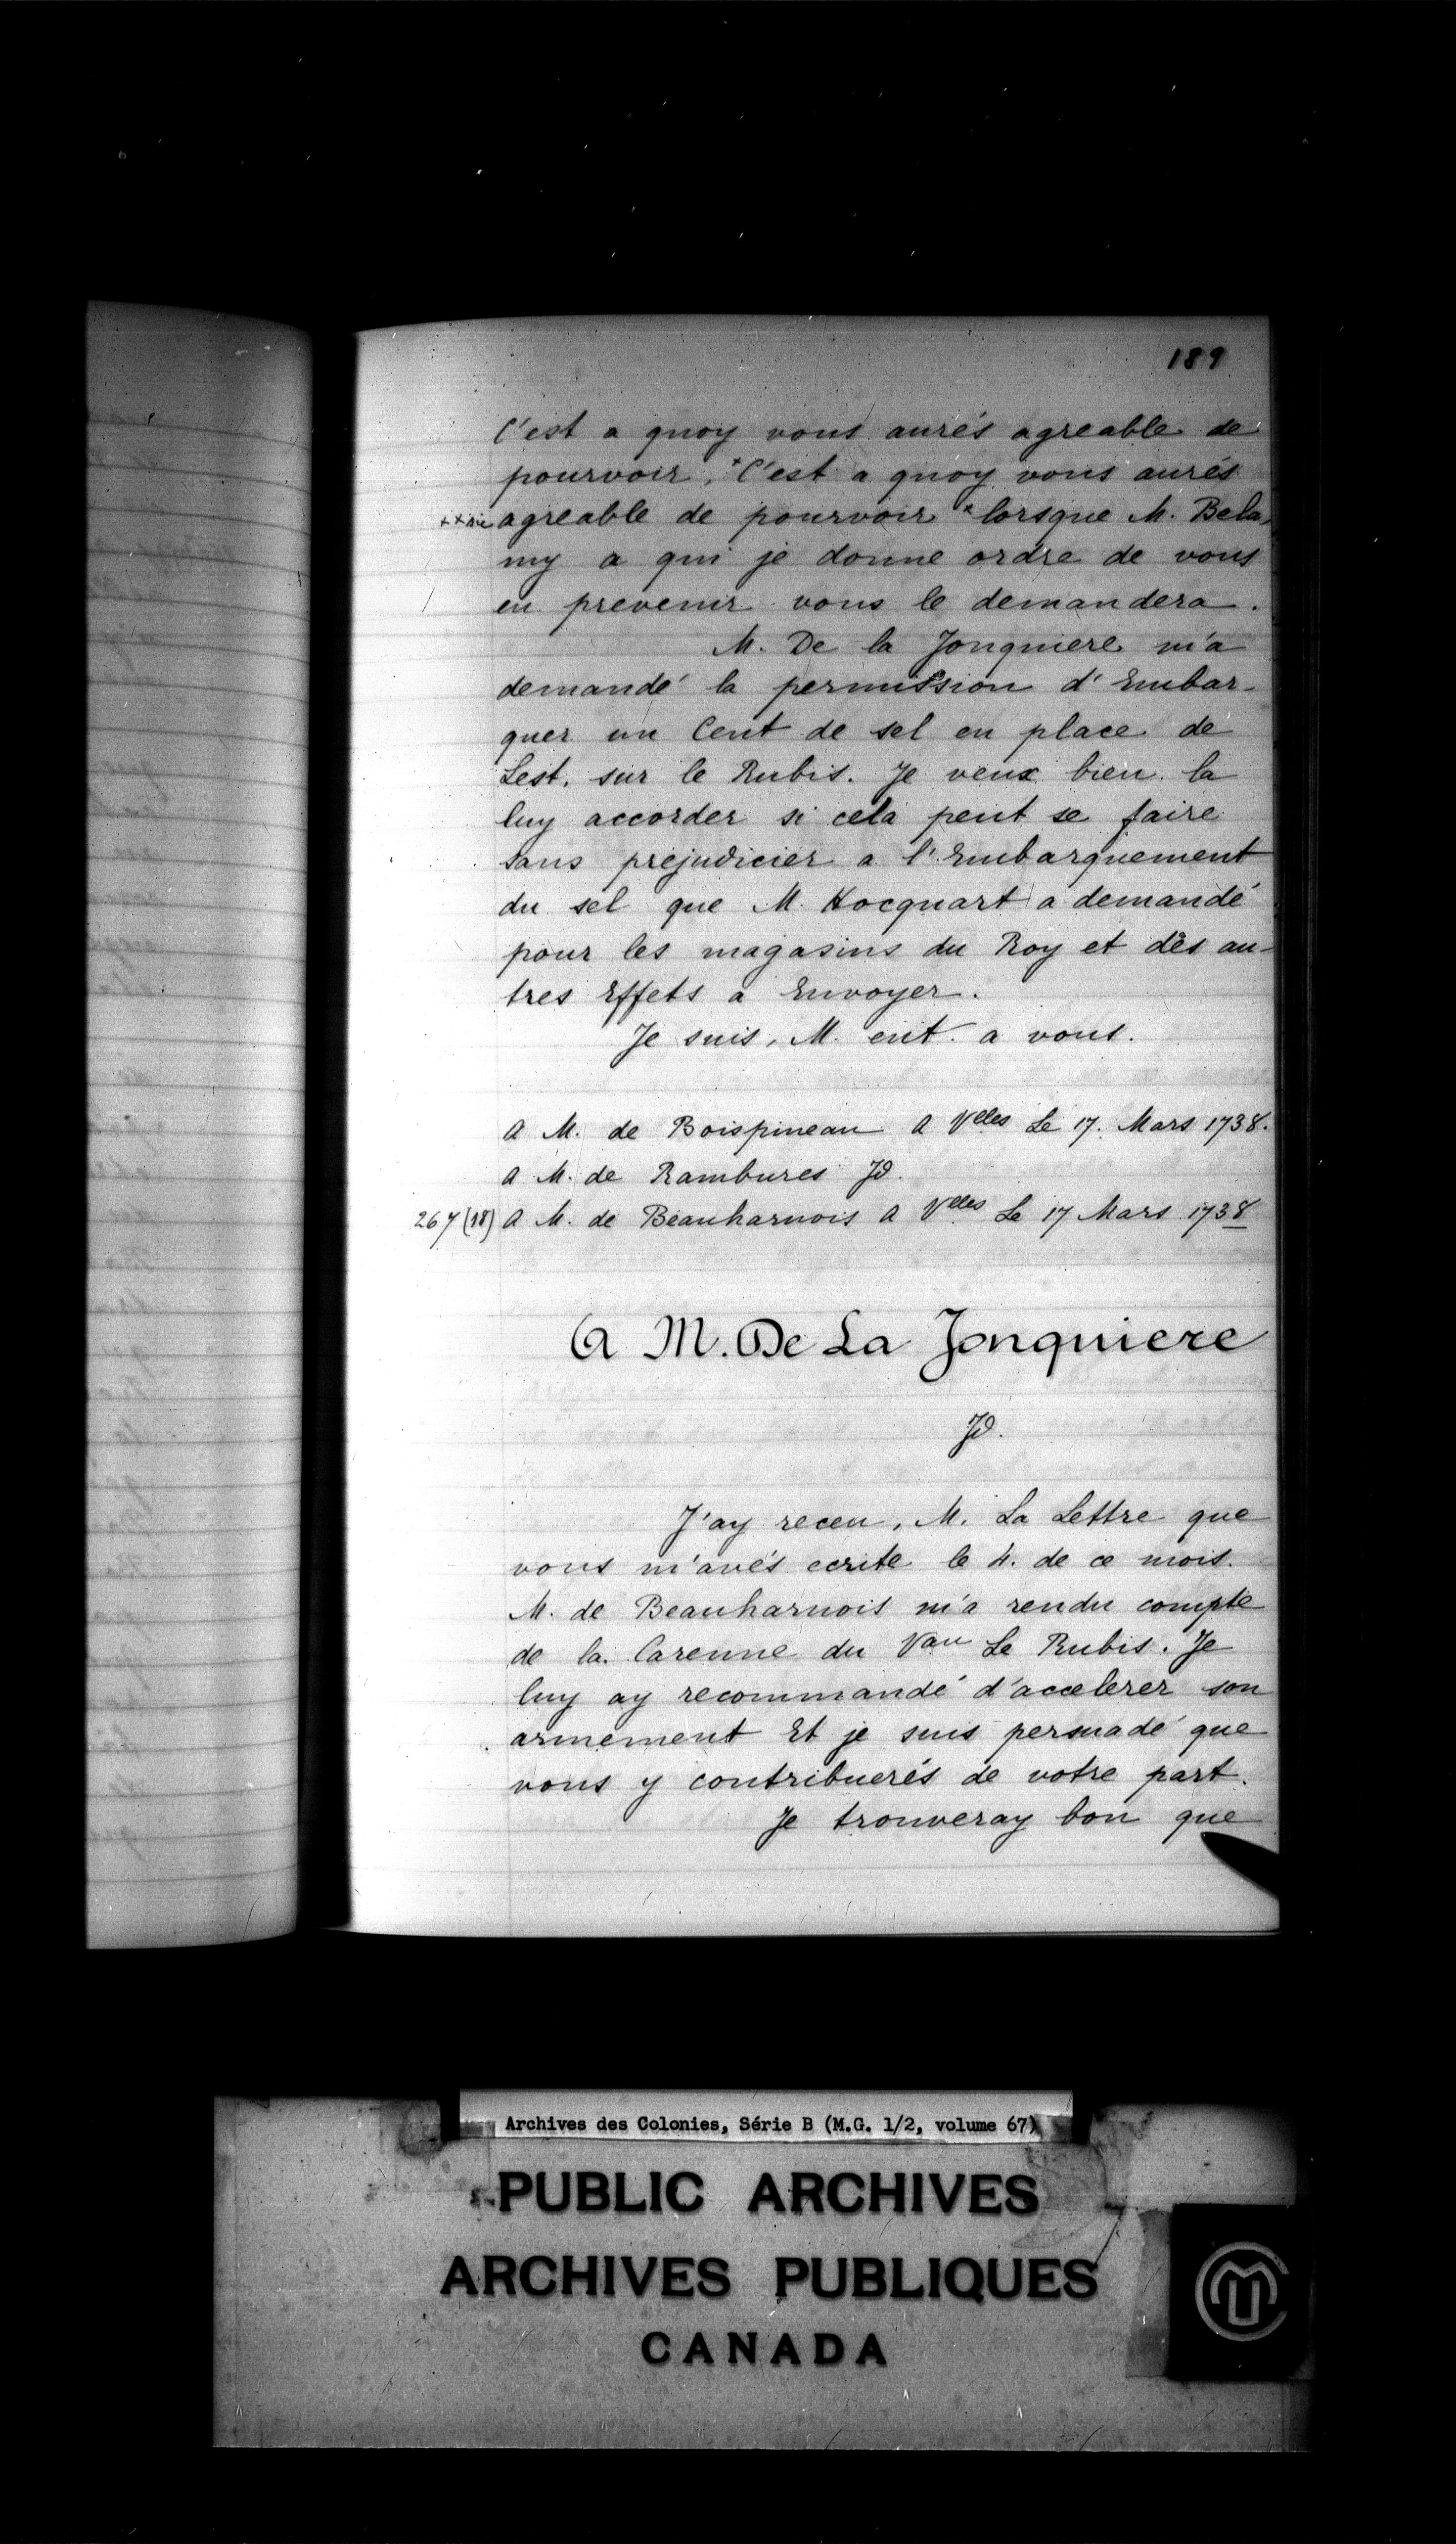 189
C'est a quoy vous aurés agreable de
pourvoir. *C'est a quoy vous aurés
xx sic agreable de pourvoir * lorsque M. Bela-
my a qui je donne ordre de vous
en prevenir vous le demandera.
M. De la Jonquiere m'a
demandé la permission d'Embar-
quer un Cent de sel en place de
Lest. sur le Rubis. Je veux bien la
luy accorder si cela peut se faire
sans prejudicier a l'Embarquement
du sel que M. Hocquart a demandé
pour les magasins du Roy et dès au-
tres Effets a Envoyer.
Je suis, M. ent. a vous.
A M. de Boispineau A Vlles Le 17. Mars 1738.
A M. de Rambures Jd.
267 (18) A M. de Beauharnois A Vlles Le 17 Mars 1738
A M. De La Jonquiere
Jd.
J'ay receu, M. La Lettre que
vous m'avés ecrite le 4. de ce mois.
M. de Beauharnois m'a rendu compte
de la Carenne du Vau Le Rubis. Je
luy ay recommandé d'accelerer son
armement Et je suis persuadé que
vous y contribuerés de votre part.
Je trouveray bon que
Archives des Colonies, Série B (M.G. 1/2, volume 67)
PUBLIC ARCHIVES
ARCHIVES PUBLIQUES
CANADA